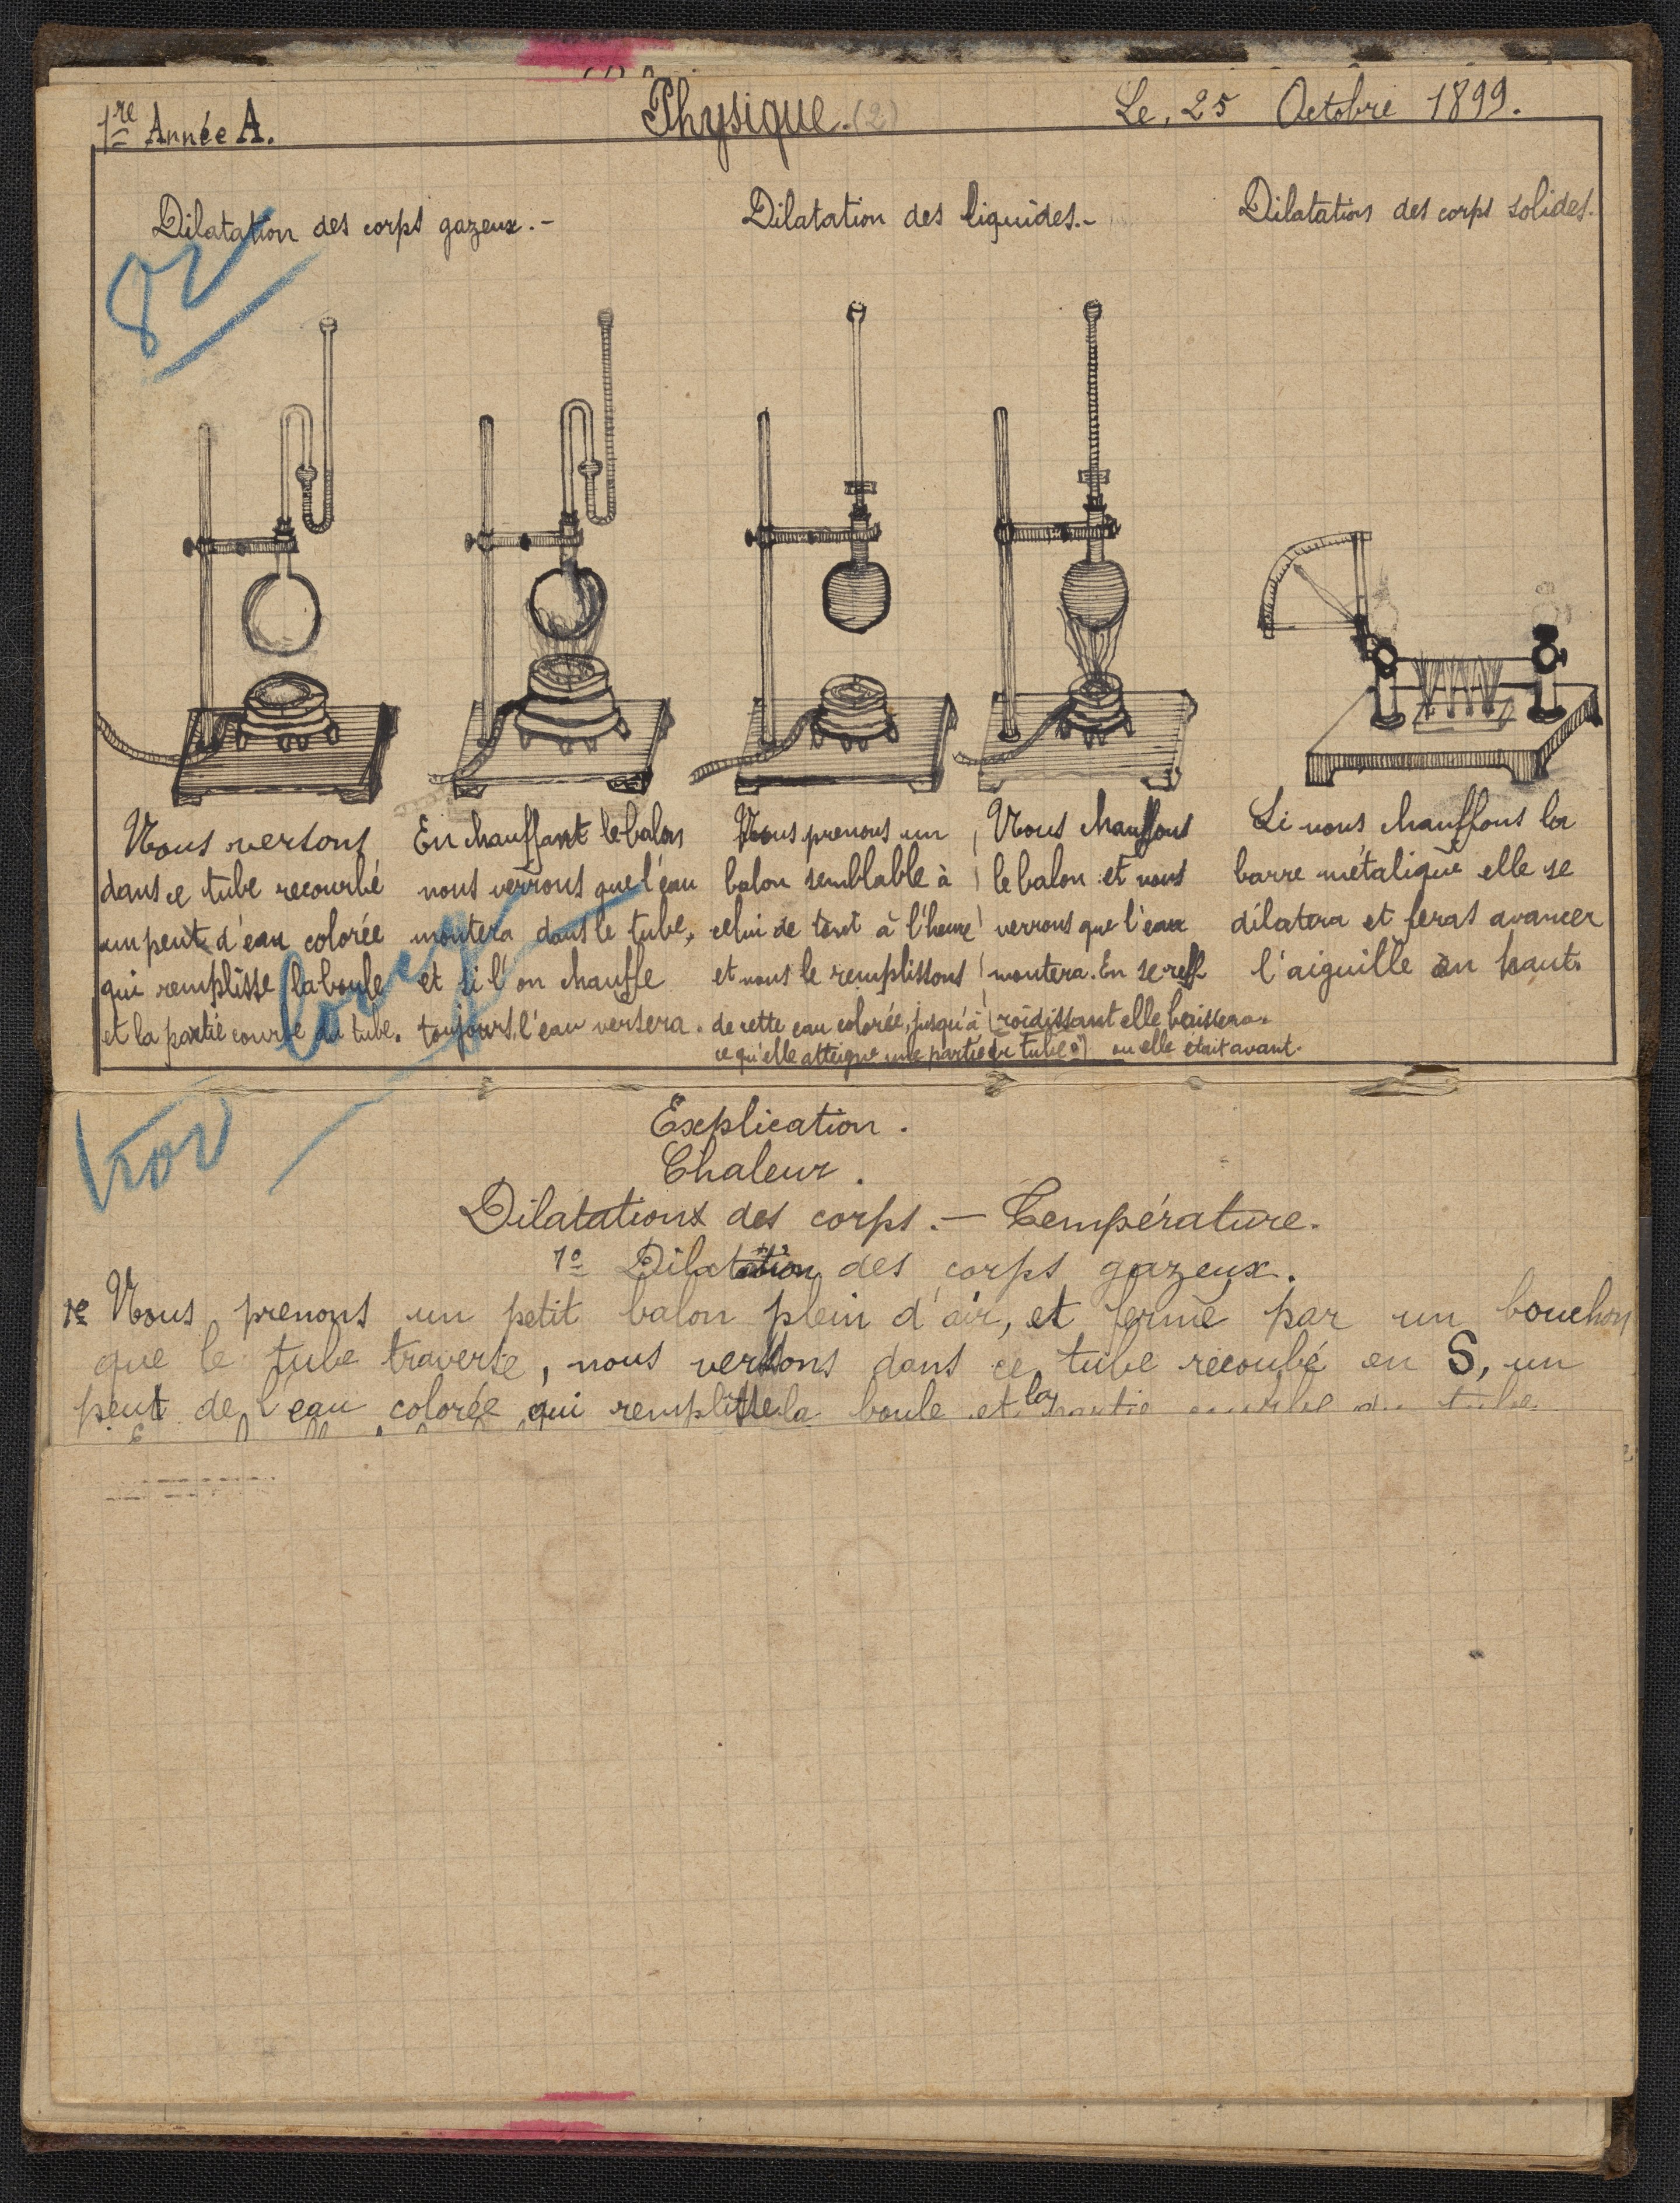 1re Année A.
Physique. (2)
Le, 25 Octobre 1899.
Dilatation des corps gazeux. -
Dilatation des liquides. -
Dilatation des corps solides.
Nous versons
dans ce tube recourbé
un peut d'eau colorée
qui remplisse la boule
et la partie courbe du tube.
En chauffant le balon
nous verrons que l'eau
montera dans le tube,
et si l'on chauffe
toujours, l'eau versera.
Nous prenons un
balon semblable à
celui de tout à l'heure
et nous le remplissons
de cette eau colorée, jusqu'à
ce qu'elle atteigne une partie du tube
Nous chauffons
le balon et nous
verrons que l'eau
montera. En se reff
roidissant elle baissera
ou elle était avant.
Si nous chauffons la
barre métalique elle se
dilatera et feras avancer
l'aiguille en haut.
Explication.
Chaleur.
Dilatations des corps. - Température.
1º Dilatation des corps gazeux.
Nous prenons un petit balon plein d'air, et fermé par un bouchon
que le tube traverse, nous versons dans ce tube recoubé en S, un
peut de l'eau colorée qui remplisse la boule et la partie courbe du tube